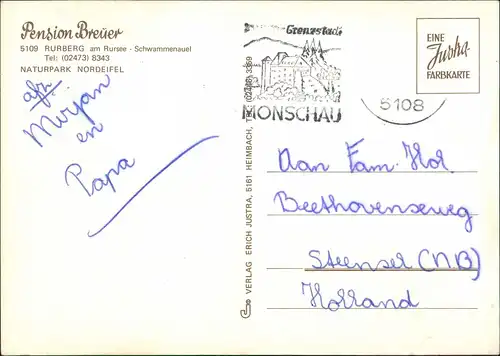 Pension Breuer
5109 RURBERG am Rursee - Schwammenauel
Tel: (02473) 8343
NATURPARK NORDEIFEL
afz.
Mirjan
en
Papa
Grenzstadt
MONSCHAU
5108
EINE
Justra
FARBKARTE
VERLAG ERICH JUSTRA, 5161 HEIMBACH, TEL. (02446) 3369
Aan Fam. Hol
Beethovenseweg
Steensel (N.B)
Holland